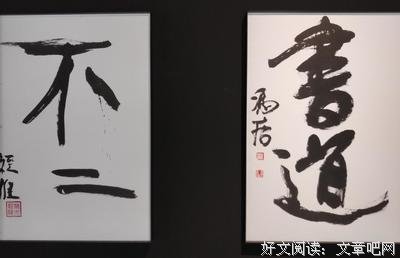 不二
書道
好文阅读：文章吧网